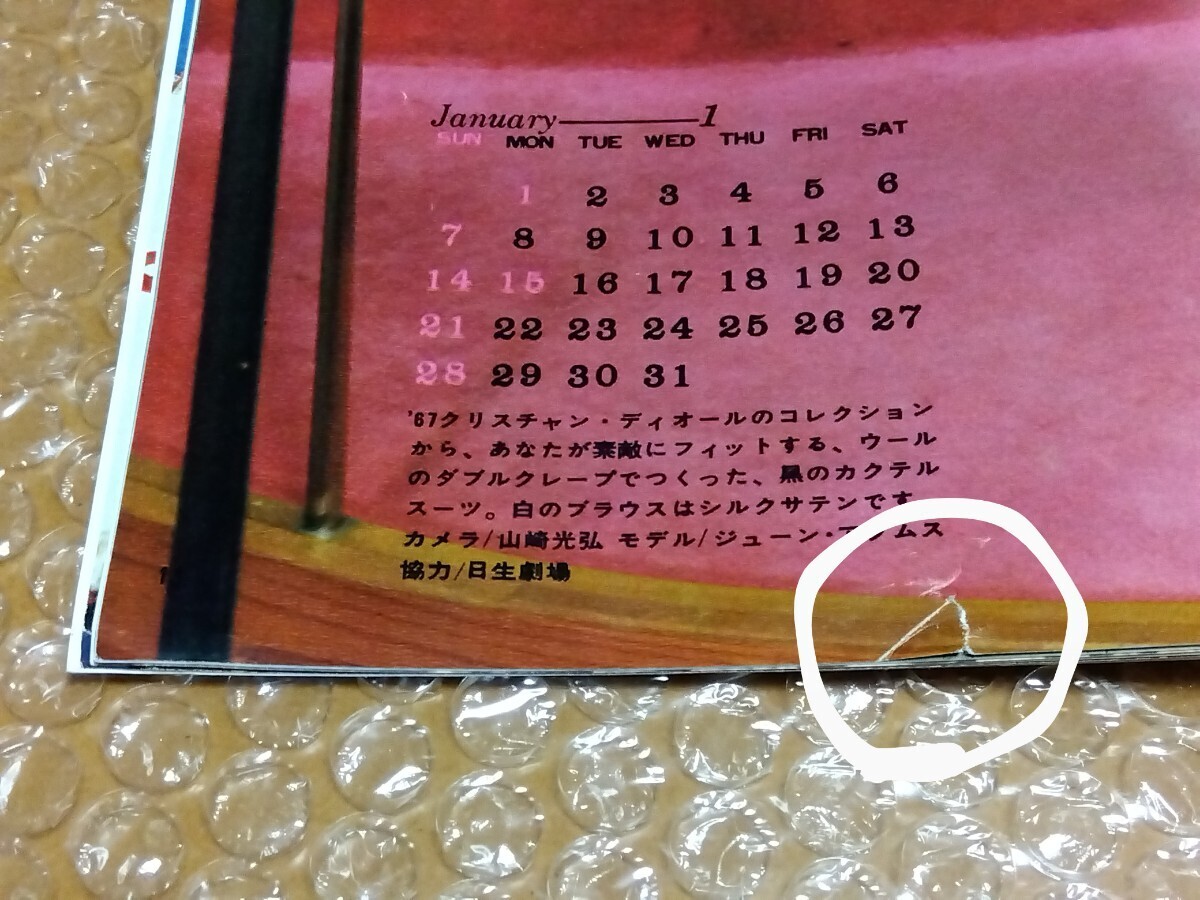 January 1
SUN MON TUE WED THU FRI SAT
1 2 3 4 5 6
7 8 9 10 11 12 13
14 15 16 17 18 19 20
21 22 23 24 25 26 27
28 29 30 31
'67クリスチャン・ディオールのコレクション
から、あなたが素敵にフィットする、ウール
のダブルクレープでつくった、黒のカクテル
スーツ。白のブラウスはシルクサテンです
カメラ/山崎光弘 モデル/ジューン・
協力/日生劇場